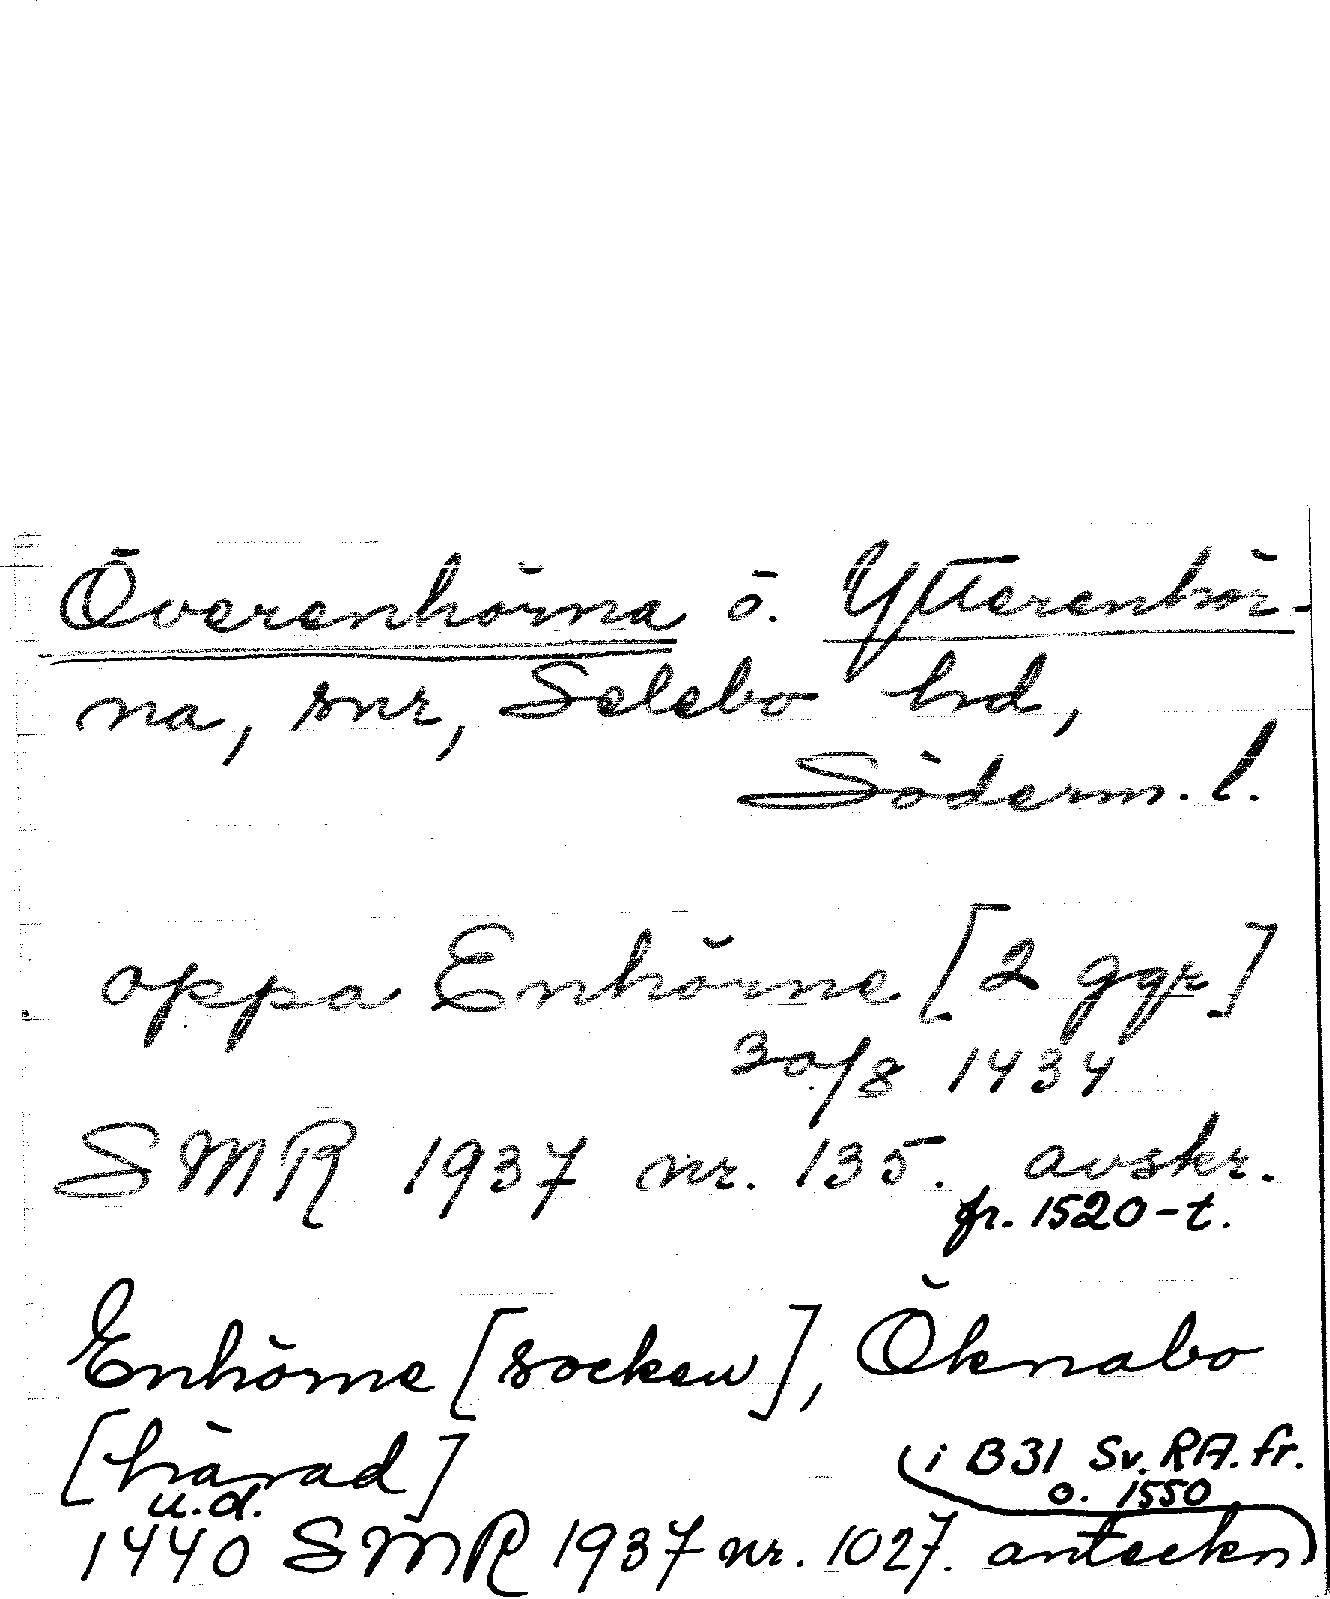 Överenhörna o. Ytterenhör-
na, snr, Selebo hd,
Söderm. l.
oppa Enhörne [2 ggr]
30/8 1434
SMR 1937 nr. 135. avskr.
fr. 1520-t.
Enhörne [socken], Öknabo
[härad]
u.d.
1440 SMR 1937 nr. 1027. anteckn
i B31 Sv. RA. fr.
o. 1550